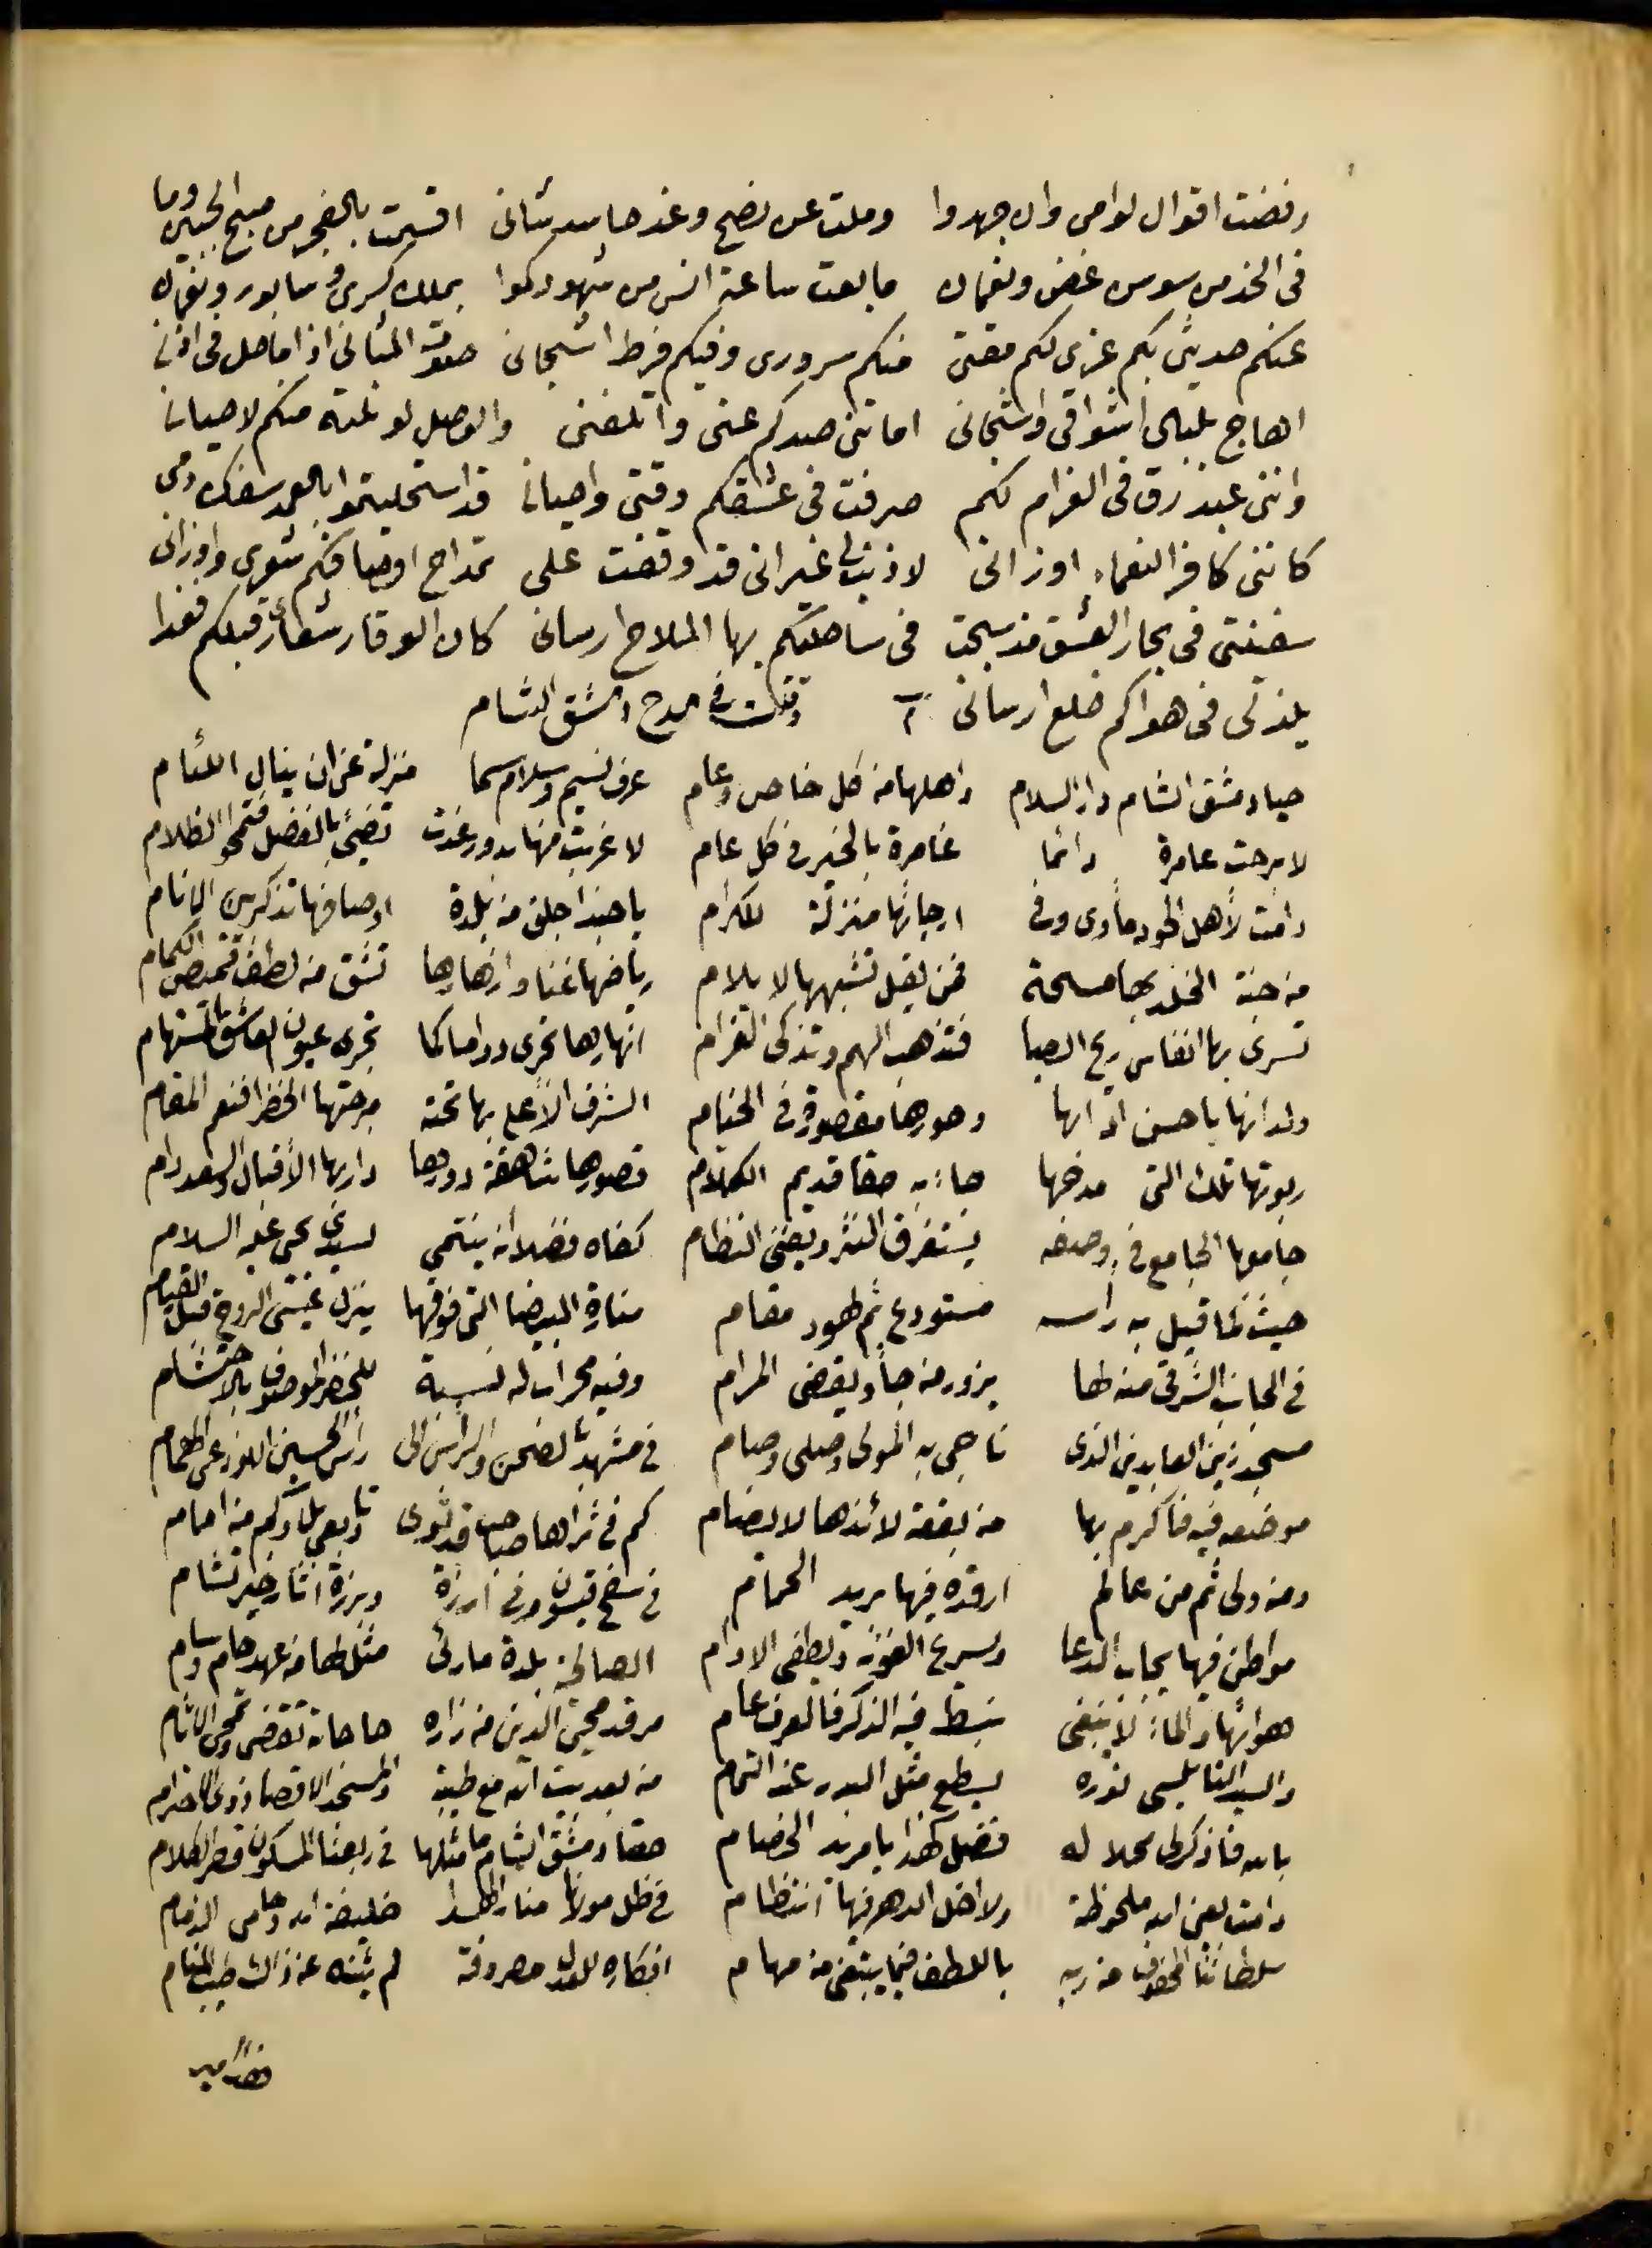 رفضت اقوال لوامى وان جهدوا وملت عن نصح وغد حاسد شانى اقسمت بالفجر من صبح الجبين وما
فى الخد من سوسن غض ونعمان ما بعت ساعة انس من شهودكموا بملك كسرى وسابور ونعمان
عنكم حديثى بكم عزى لكم مقتى منكم سرورى وفيكم فرط اشجانى صوت المثانى اذا ماحل فى اذنى
اهاج بلبال اشواقى واشجانى اماتنى صدكم عنى واتلفنى والوصل لو نلته منكم لاحيانا
واننى عبد رق فى الغرام لكم صرفت فى عشقكم وقتى واحيانا قد استحليتموا بالعمد سفك دمى
كاننى كافر النعماء اوزانى لا ذنب لى غير انى قد وقفت على تمداح اوصافكم شعرى واوزانى
سفينتى فى بحار العشق مذ سبحت فى ساحليكم بها الملاح ارسانى كان الوقار شعارى قبلكم فغدا
يلذ لى فى هواكم خلع ارسانى وقلت فى مدح دمشق الشام
حيا دمشق الشام دار السلام واهلها من كل خاص وعام عرف نسيم وسلام سما منزلة عن ان ينال اللئام
لا برحت عامرة دائما غامرة بالخير فى كل عام لا غربت منها بدور غدت تضئ بالفضل فتمحو الظلام
دامت لأهل الجود مأوى وفى ارجائها منزلة للكرام يا حبذا جلق من بلدة اوصافها تذكر بين الانام
من جنة الخلد بها مسحة فمن يقل تشبهها لا يلام رياضها غنا وازهارها تشق من لطف قميص الكمام
تسرى بها انفاس ريح الصبا فتذهب الهم وتذكى الغرام انهارها تجرى دواما كما تجرى عيون العاشق المستهام
ولدانها يا حسن اترابها وحورها مقصورة فى الخيام الشرف الأعلى بها تحته مرجتها الخضرا فنعم المقام
ربوتها تلك التى مدحها جاء به حقا قديم الكلام قصورها شاهقة دورها دار بها الأقبال والسعد دام
جامعها الجامع فى وصفه يستغرق النثر ويفنى النظام كفاه فضلا انه ينتمى لسيدى يحيى عليه السلام
حيث لما قيل به راسه مستودع ثم لهود مقام منارة البيضا التى فوقها ينزل عيسى الروح قبل القيام
فى الجانب الشرقى منه لها يزور من جاء ويقضى المرام وفيه محراب له نسبة للخضر الموصوف بالاحتشام
مسجد زين العابدين الذى ناجى به المولى وصلى وصام فى مشهد الصحن والراس الى راس الحسين اللوذعى الهمام
موضعه فيه فاكرم بها من بقعة لائذها لا يضام كم فى ثراها صاحب قد ثوى وتابعى بل وكم من امام
ومن ولى ثم من عالم ارقده فيها مريد الحمام فى سفح قيسون وفى ارزة وبرزة اثار خير تشام
مواطن فيها يجاب الدعا ويسرع الغوث ويطفى الاوام الصالحية بلدة ما رئى مثل لها من عهد حام وسام
هوائها والماء لا ينبغى يبسط فيه الذكر فالعرف عام مرقد محيى الدين من زاره حاجاته تقضى وتمحى الاثام
والسيد النابلسى نوره يسطع مثل البدر عند التمام من بعد بيت الله مع طيبة والمسجد الاقصا ذوى الاحترام
بالله فاذكر لى محلا له فضل كهذا يا مريد الخصام حقا دمشق الشام ما مثلها فى ربعنا المسكون قصر الكلام
دامت بعين الله ملحوظة ولا اخل الدهر فيها انتظام فى ظل مولانا منار الهدا خليفة الله وحامى الذمام
سلطاننا المحفوف من ربه باللطف فيما يبتغى من مهام افكاره للعدل مصروفة لم يثنه عن ذاك طيب المنام